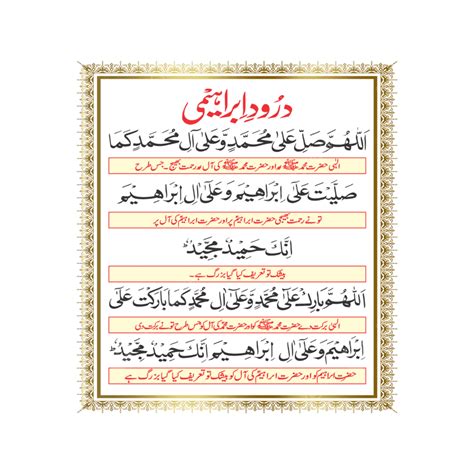 درود ابراہیمی
اَللّٰهُمَّ صَلِّ عَلٰی مُحَمَّدٍ وَّعَلٰی اٰلِ مُحَمَّدٍ کَمَا
الٰہی حضرت محمد ﷺ اور حضرت محمد ﷺ کی آل پر رحمت بھیج ۔ جس طرح
صَلَّیْتَ عَلٰی اِبْرَاهِیْمَ وَعَلٰی اٰلِ اِبْرَاهِیْمَ
تو نے رحمت بھیجی حضرت ابراہیمؑ پر اور حضرت ابراہیمؑ کی آل پر
اِنَّكَ حَمِیْدٌ مَّجِیْدٌ
بیشک تو تعریف کیا گیا بزرگ ہے ۔
اَللّٰهُمَّ بَارِكْ عَلٰی مُحَمَّدٍ وَّعَلٰی اٰلِ مُحَمَّدٍ کَمَا بَارَکْتَ عَلٰی
الٰہی برکت دے حضرت محمد ﷺ کو اور حضرت محمد ﷺ کی آل کو جس طرح تو نے برکت دی
اِبْرَاهِیْمَ وَعَلٰی اٰلِ اِبْرَاهِیْمَ اِنَّكَ حَمِیْدٌ مَّجِیْدٌ
حضرت ابراہیمؑ کو اور حضرت ابراہیمؑ کی آل کو بیشک تو تعریف کیا گیا بزرگ ہے